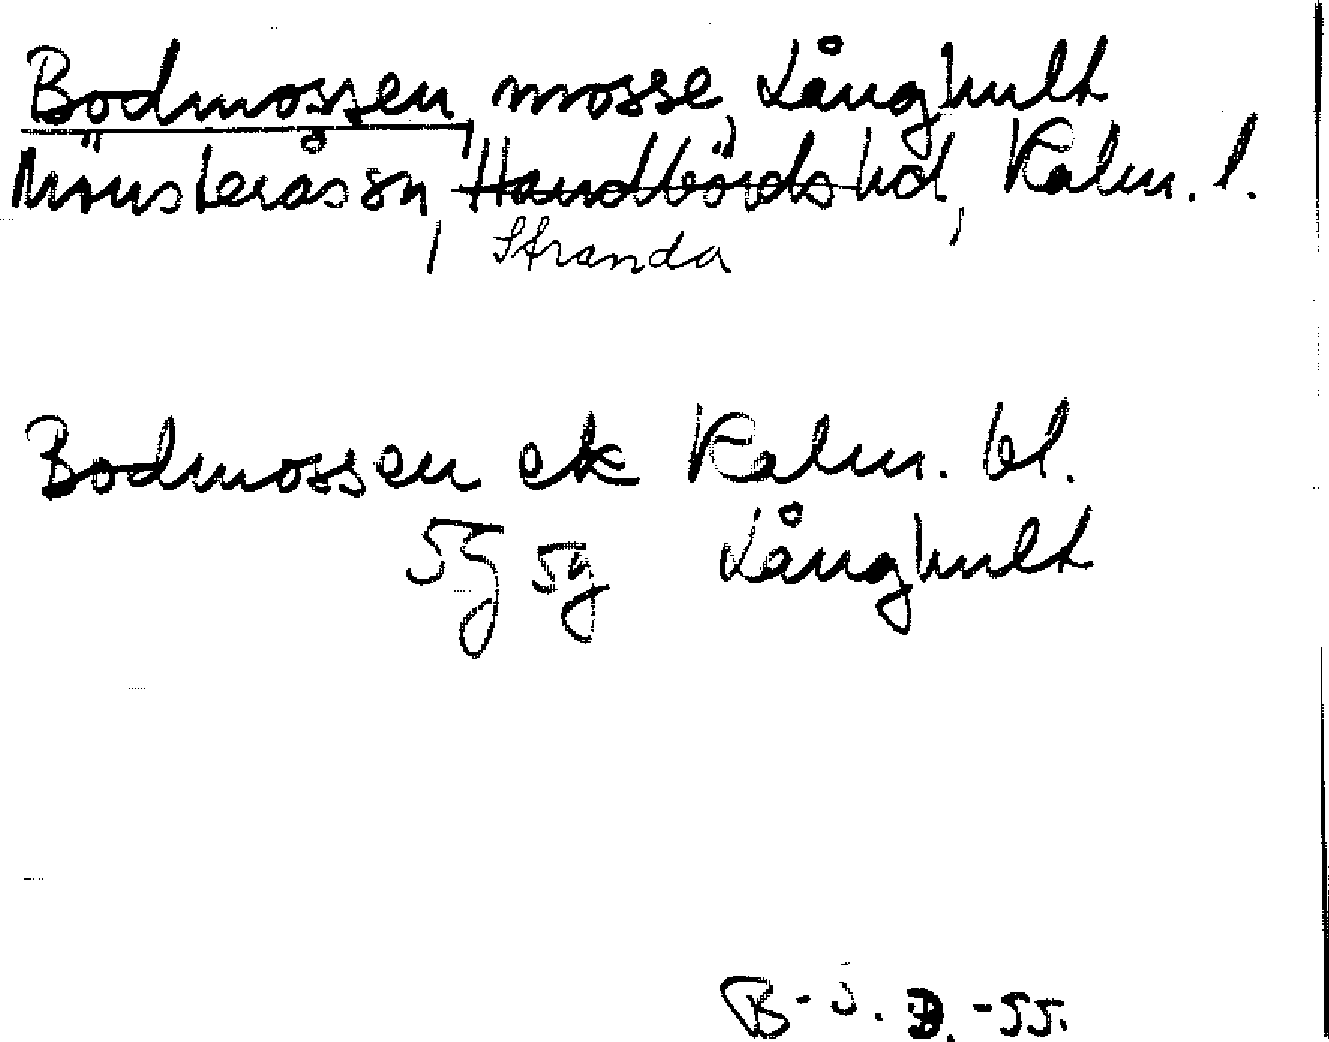 Bodmossen, mosse, Långhult
Mönsterås sn, Handbörds hd, Kalm. l.
Stranda
Bodmossen ek Kalm. bl.
5g 5g Långhult
B-Å. D. -55.